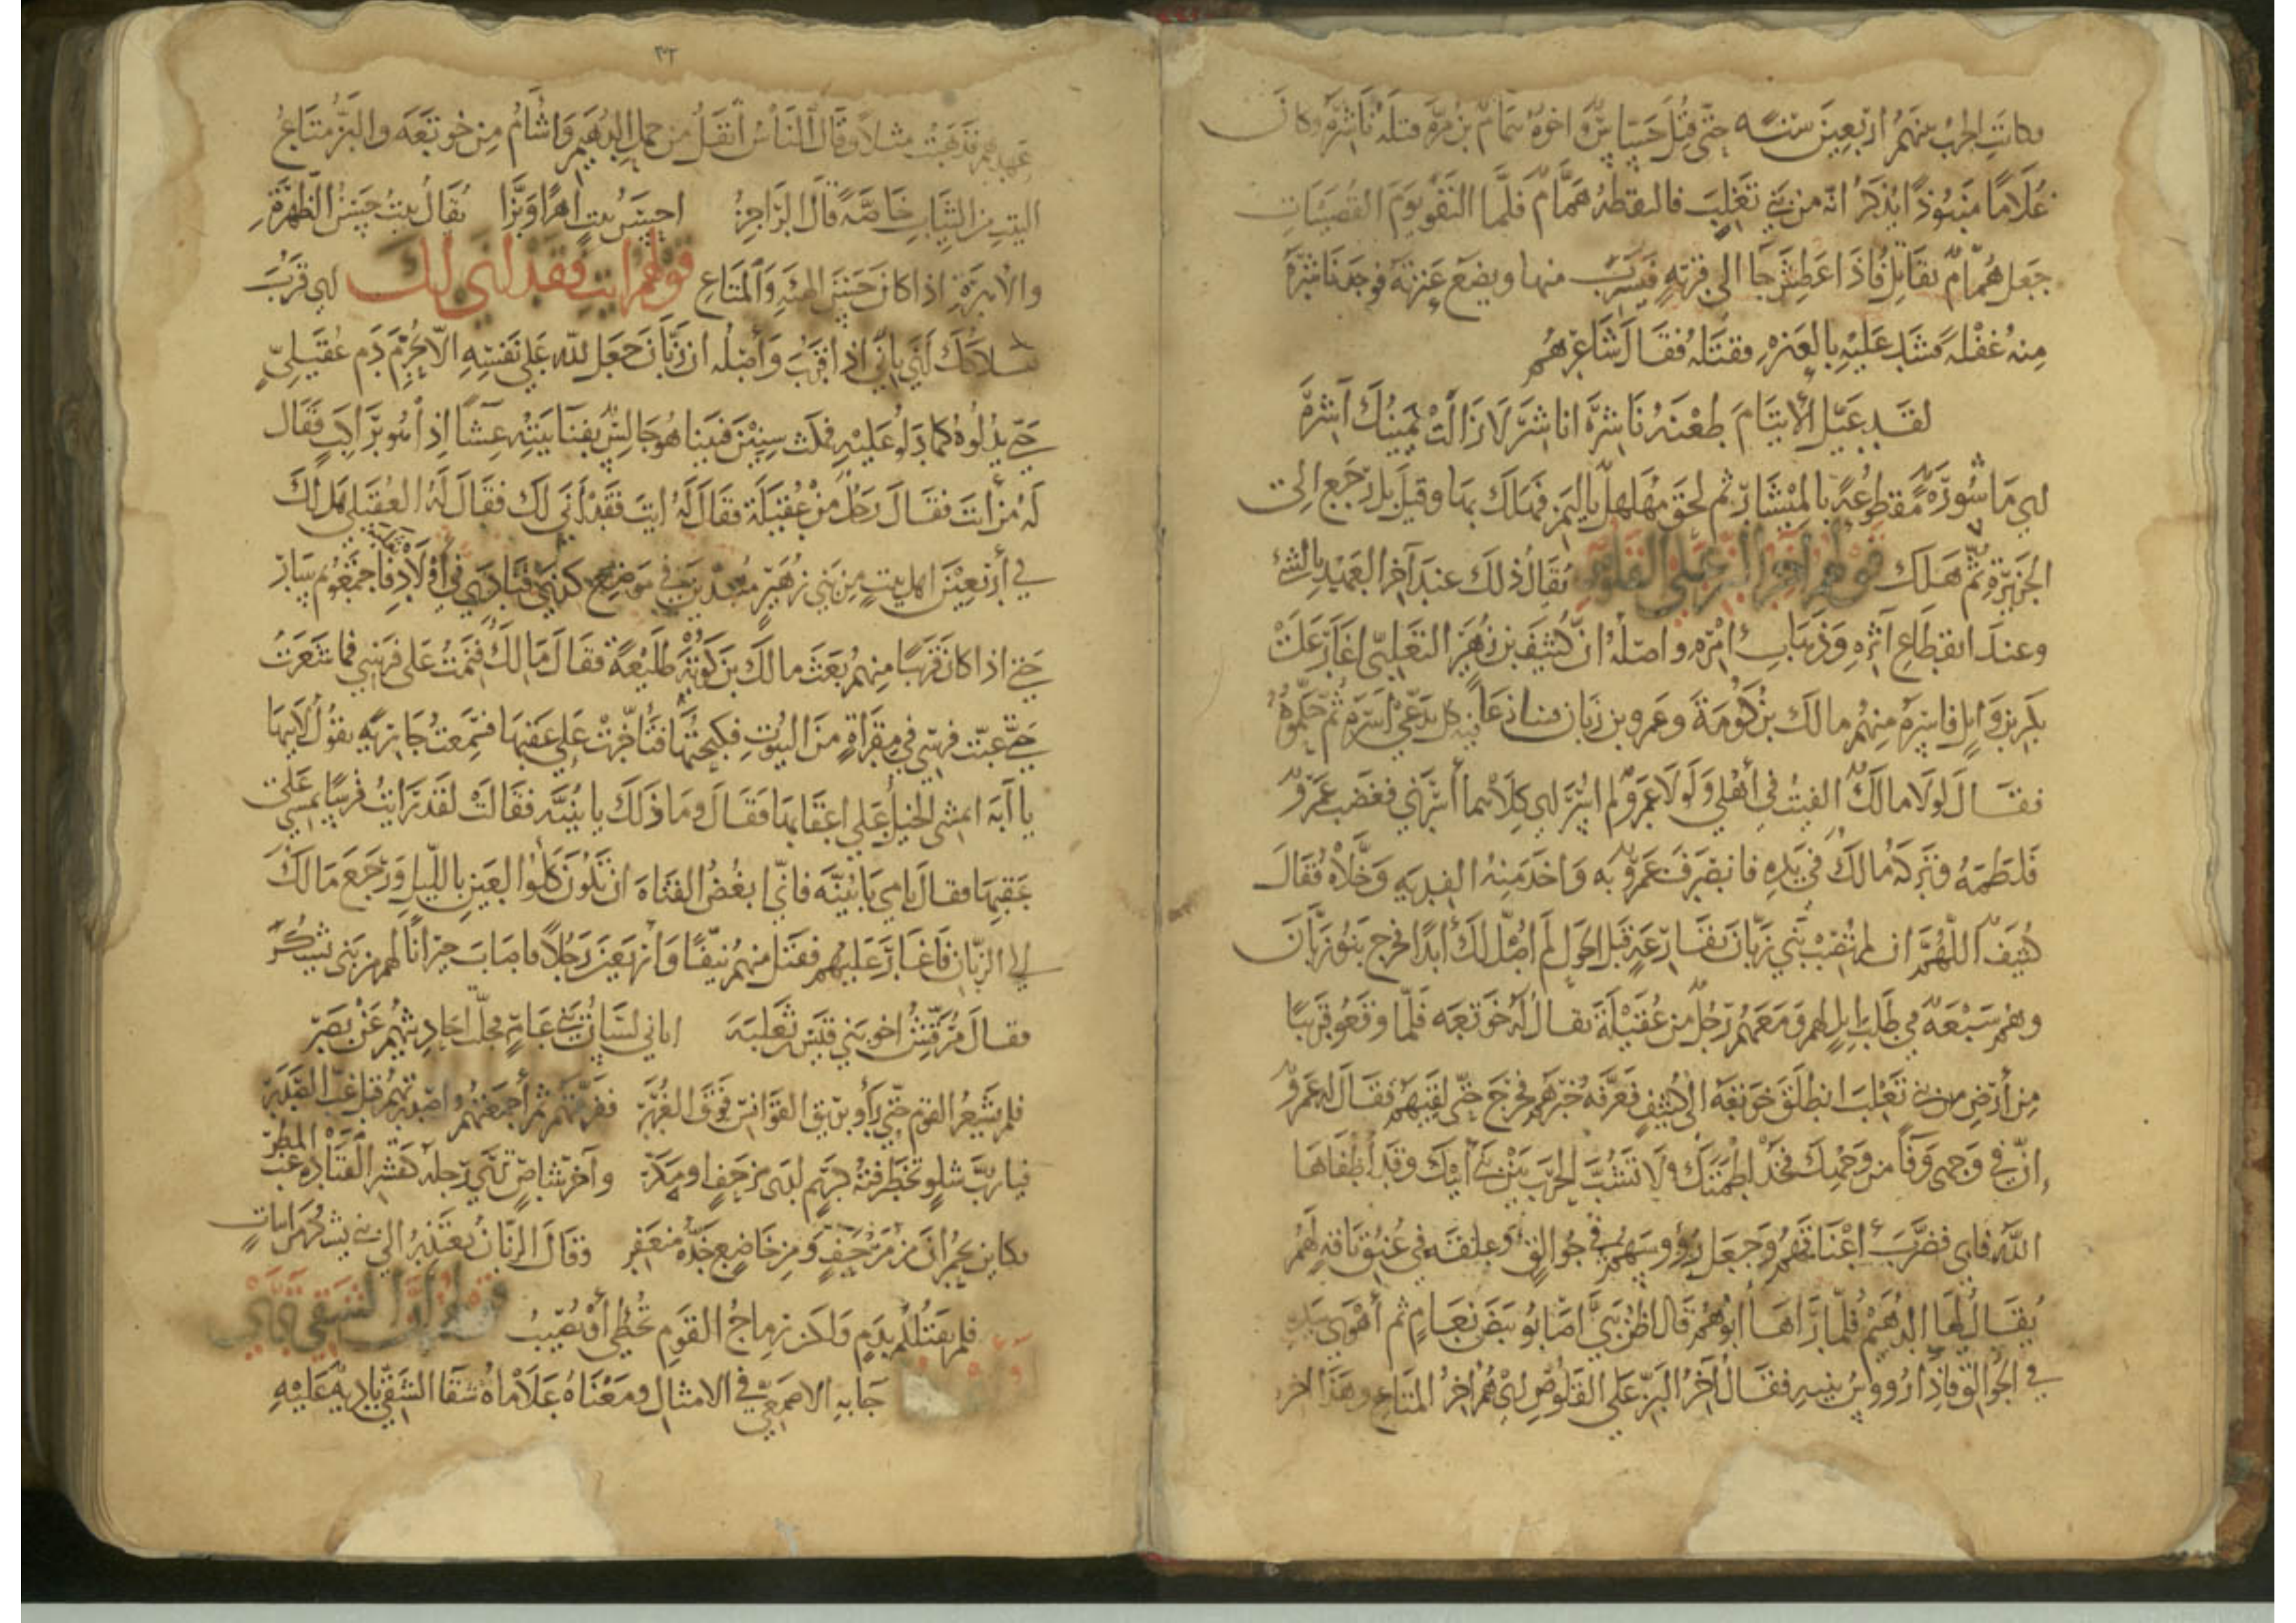 فكانت الحرب بينهم اربعين سنة حتى قتل جساس واخوه همام بن مرة قتله ناشرة وكان
غلاما منبوذا يذكر انه من بني تغلب فالتقطه همام فلما التقو يوم القصيبات
جعل همام يقاتل فاذا عطش جا الى قربة فيشرب منها ويضع عنزته فوجد ناشرة
منه غفلة فشد عليه بالعنزة فقتله فقال شاعرهم
لقد عيل الايتام طعنة ناشرة اناشر لا زالت يمينك آشرة
اي ماشورة مقطوعة بالمنشار ثم لحق مهلهل باليمن فهلك بها وقيل بل رجع الى
الجزيرة ثم هلك قولهم آخر البز على القلوص يقال ذلك عند آخر العهد بالشئ
وعند انقطاع اثره وذهاب امره واصله ان كثيف بن زهير التغلبي اغار على
بكر بن وايل فاسره منهم مالك بن كومة وعمرو بن زبان فتنازعا فيه كل يدعي اسره ثم حكموه
فقال لولا مالك الفيت في اهلي ولولا عمرو لم اوسر اي كلاهما أسرني فغضب عمرو
فلطمه فتركه مالك في يده فانصرف عمرو به واخذ منه الفدية وخلاه فقال
كثيف اللهم ان لم تصب بني زبان بقارعة قبل الحول لم اصل لك ابدا فخرج بنو زبان
وهم سبعة في طلب ابل لهم ومعهم رجل من عقيلة يقال له خوتعه فلما وقعو قريبا
من أرض بني تغلب انطلق خوتعة الى كثيف فعرفه خبرهم فخرج حتى لقيهم فقال له عمرو
إن في وجهى وفاً من وجهك فخذ لطمتك ولا تشب الحرب بين بني أبيك وقد أطفاها
الله فابى فضرب اعناقهم وجعل رؤوسهم في جوالق وعلقه في عنق ناقة لهم
يقال لها الدهيم فلما رآها أبوهم قال اظن بني اصابو بيض نعام ثم أهوى بيده
في الجوالق فاذا رؤوس بنيه فقال آخر البز على القلوص اي هم آخر المتاع وهذا آخر
٣٢
عهدهم فذهبت مثلا وقال الناس أثقل من حمل الدهيم واشأم من خوتعه والبز متاع
البيت من الثياب خاصة قال الراجز احسن بيت اهرا وبزا يقال بيت حسن الظهرة
والاهرة اذا كان حسن الهيئة والمتاع قولهم ايت فقد انى لك اي قرب
أنى يانى اذا قرب وأصله ان زبان جعل لله على نفسه الا يحرم دم عقيلي
حتى يدلوه كما دلوا عليه فمكث سنين فبينا هو جالس بفنا بيته عشا اذا هو براكب فقال
له من أنت فقال رجل من عقيلة فقال له ايت فقد أنى لك فقال له العقيلى هل لك
في أربعين اهل بيت من بني زهير متبدين في موضع كذى فنادى في أولاده فاجتمعو ثم سار
حتى اذا كان قريبا منهم بعث مالك بن كومة طليعة فقال مالك فنمت على فرسي فما شعرت
حتى عبت فرسي في مقراة من البيوت فكبحتها فتأخرت على عقبها فسمعت جارية يقول لابيها
يا أبه اتمشى الخيل على اعقابها فقال وما ذلك يا بنيه فقالت لقد رايت فرسا تمشى على
عقبيها فقال نامي يا بنية فاني ابغض الفتاة ان تكون كلوا العين بالليل ورجع مالك
الى الزبان فأغار عليهم فقتل منهم نيفا وأربعين رجلا واصاب جيرانا لهم من بنى يشكر
فقال مرقش اخو بني قيس ثعلبة اتاني لسان بني عامر فجلت احاديثهم عن بصر
فلم يشعر القوم حتى رأو بريق القوانس فوق الغرر ففرقتهم ثم أجمعتهم واصدرتهم قبل غب الصدر
فيارب شلو تخطرفته كريم لدى مزحف او مكر وآخر شاص ترى جلده كقشر القتادة غب المطر
فكاين بحمران من مزحف ومن خاضع خده منعفر وقال الزبان يعتذر الى بني يشكر ابيات
فلم نقتلكم بدم ولكن رماح القوم تخطى أو تصيب
جا به الاصمعي في الامثال ومعناه علاماه شقا الشقي باديه عليه